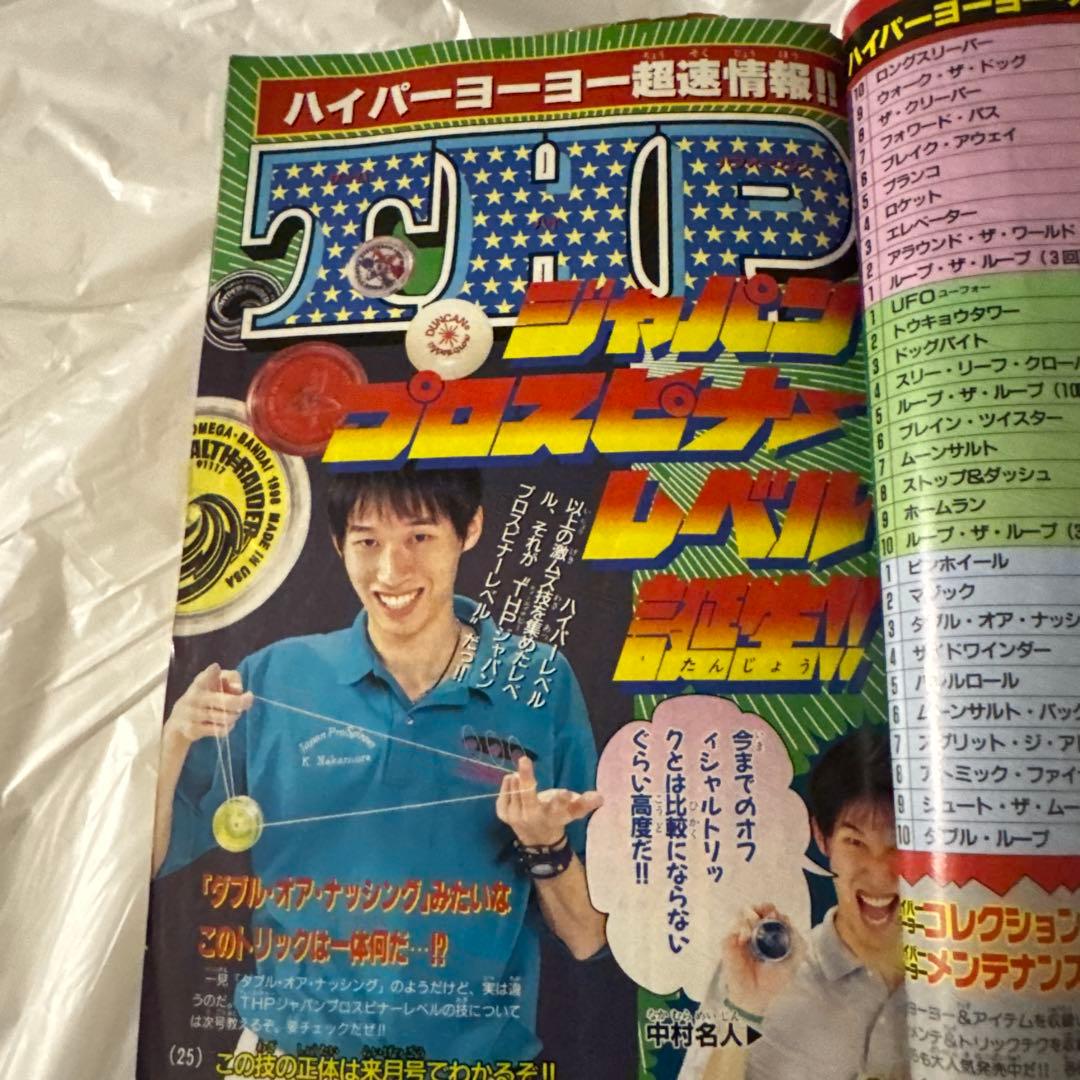 ハイパーヨーヨー超速情報!!
THP
ジャパン
プロスピナー
レベル
誕生!!
たんじょう
DUNCAN
OMEGA・BANDAI 1998 MADE IN USA
STEALTH RAIDER
01117
ハイパーレベル
以上の激ムズ技を集めたレベ
ル、それが“THPジャパン
プロスピナーレベル”だっ!!
Japan ProSpinner
K. Nakamura
今までのオフ
ィシャルトリッ
クとは比較にならない
ぐらい高度だ!!
「ダブル・オア・ナッシング」みたいな
このトリックは一体何だ…!?
一見「ダブル・オア・ナッシング」のようだけど、実は違
うのだ。THPジャパンプロスピナーレベルの技について
は次号教えるぞ。要チェックだぜ!!
なかむらめいじん
中村名人▶
(25)
この技の正体は来月号でわかるぞ!!
ハイパーヨーヨー
10 ロングスリーパー
9 ウォーク・ザ・ドッグ
8 ザ・クリーパー
7 フォワード・パス
6 ブレイク・アウェイ
5 ブランコ
4 ロケット
3 エレベーター
2 アラウンド・ザ・ワールド
1 ループ・ザ・ループ(3回
1 UFO ユーフォー
2 トウキョウタワー
3 ドッグバイト
4 スリー・リーフ・クローバ
5 ループ・ザ・ループ(10
6 ブレイン・ツイスター
7 ムーンサルト
8 ストップ&ダッシュ
9 ホームラン
10 ループ・ザ・ループ(3
1 ピンホイール
2 マジック
3 ダブル・オア・ナッシ
4 サイドワインダー
5 バレルロール
6 ムーンサルト・バック
7 スプリット・ジ・アト
8 アトミック・ファイ
9 シュート・ザ・ムー
10 ダブル・ループ
コレクション
メンテナンス
ーヨー&アイテムを収録
メンテ&トリックテクを収
も大人気発売中だ!!